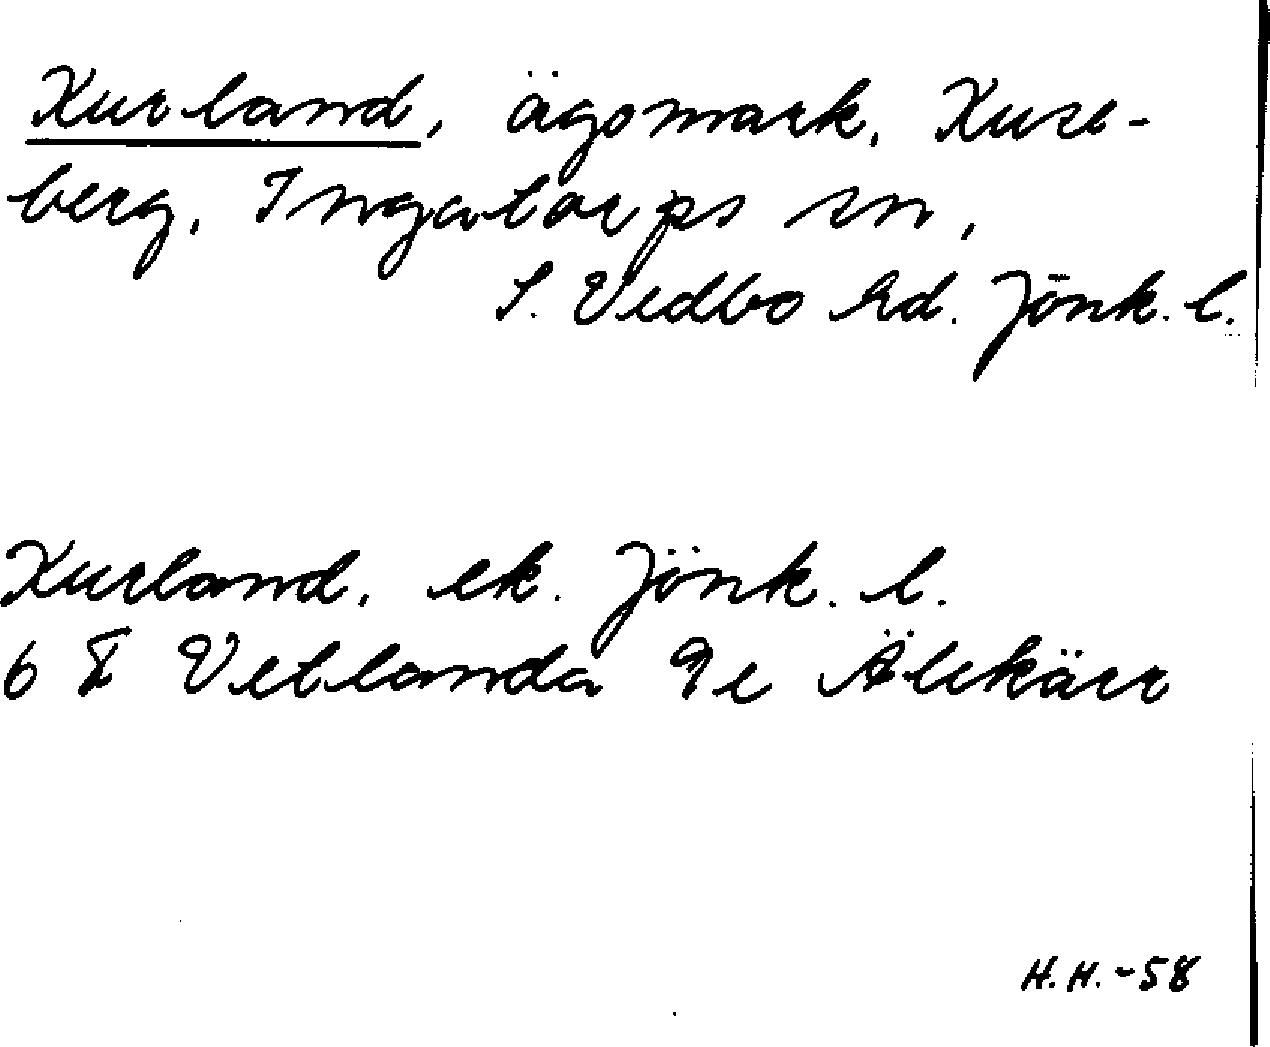 Kurland, ägomark, Kuse-
berg, Ingatorps sn,
S. Vedbo hd. Jönk. l.
Kurland, ek. Jönk. l.
6 F Vetlanda 9e Älekärr
H.H.-58